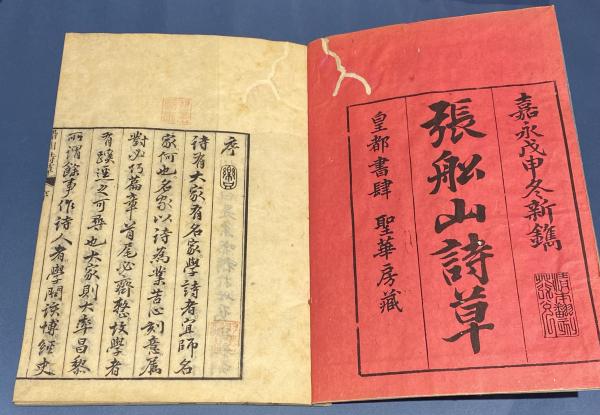 嘉永戊申冬新鐫
張船山詩草
皇都書肆 聖華房藏
序
詩有大家有名家學詩者宜師名
家何也名家以詩為業苦心刻意屬
對必巧篇章首尾必齊整故學者
有蹊逕之可尋也大家則大率昌黎
所謂餘事作詩人者學問該博經史